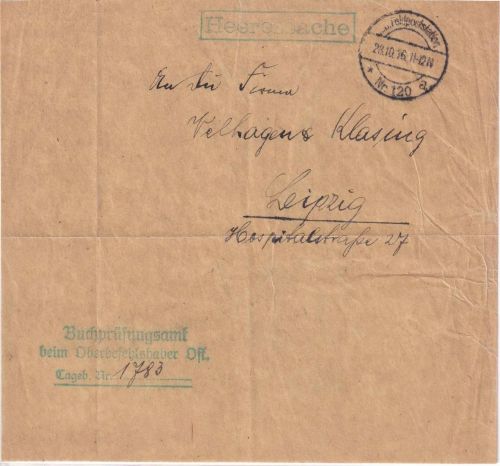 Heeressache
Feldpoststation
28.10.16. 11-12 N
* Nr. 120 a
An die Firma
Velhagen & Klasing
Leipzig
Hospitalstraße 27
Buchprüfungsamt
beim Oberbefehlshaber Ost.
Tageb. Nr. 1783